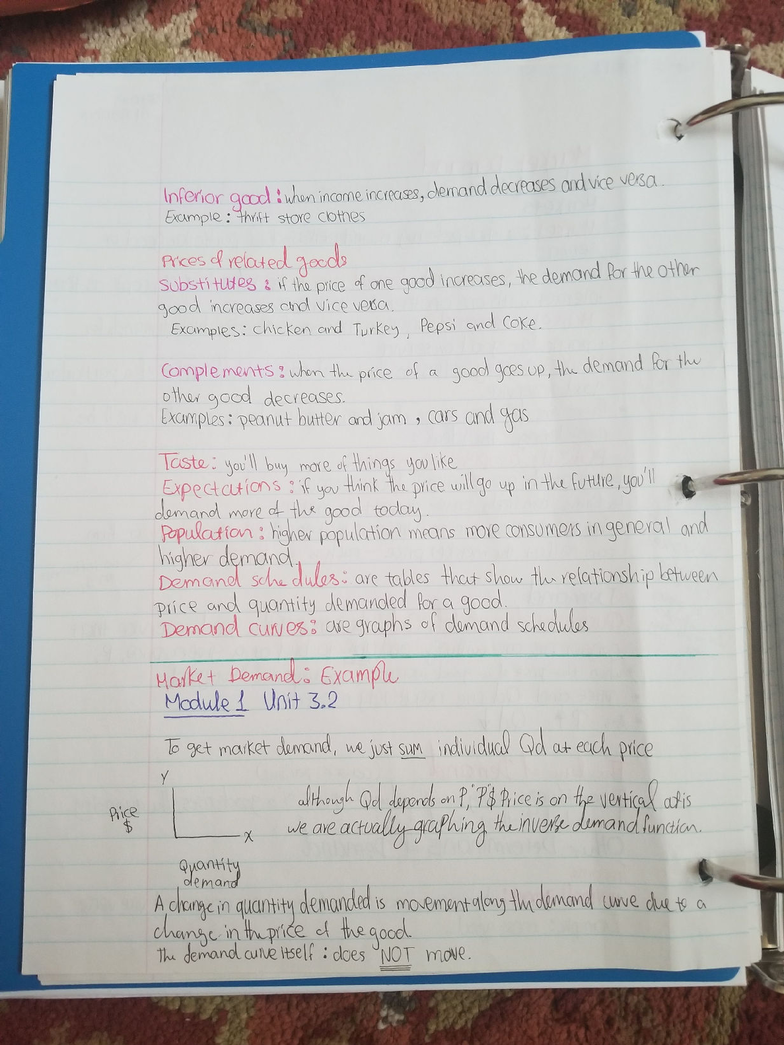 Inferior good : when income increases, demand decreases and vice versa.
Example : thrift store clothes
Prices of related goods
Substitutes : if the price of one good increases, the demand for the other
good increases and vice versa.
Examples : chicken and Turkey, Pepsi and Coke.
Complements : when the price of a good goes up, the demand for the
other good decreases.
Examples : peanut butter and jam , cars and gas
Taste : you'll buy more of things you like
Expectations : if you think the price will go up in the future, you'll
demand more of the good today.
Population : higher population means more consumers in general and
higher demand.
Demand schedules : are tables that show the relationship between
price and quantity demanded for a good.
Demand curves : are graphs of demand schedules
Market Demand : Example
Module 1 Unit 3.2
To get market demand, we just sum individual Qd at each price
Y
Price
$
X
Quantity
demand
although Qd depends on P, P$ Price is on the vertical axis
we are actually graphing the inverse demand function.
A change in quantity demanded is movement along the demand curve due to a
change in the price of the good
The demand curve itself : does NOT move.